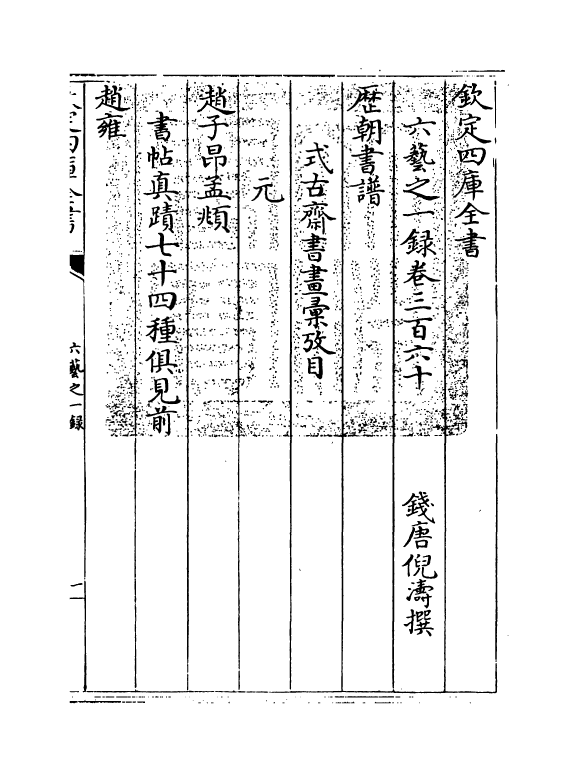 欽定四庫全書
六藝之一録卷三百六十
錢唐倪濤撰
歴朝書譜
式古齋書畫彙攷目
元
趙子昂孟頫
書帖真蹟七十四種俱見前
趙雍
六藝之一録
一